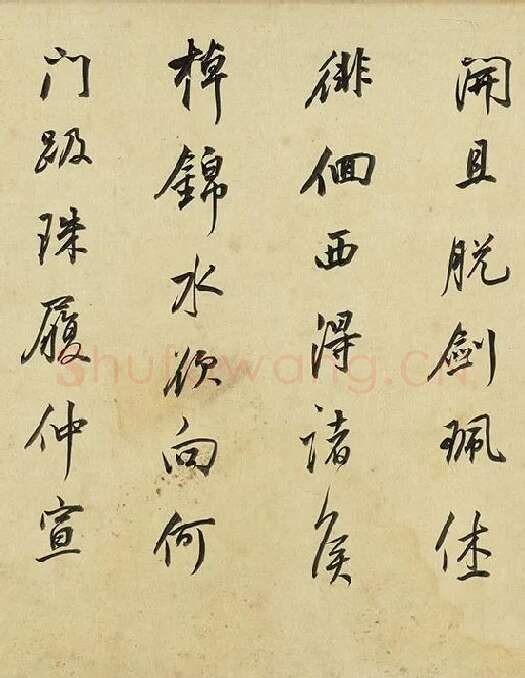 開且脱劍珮休
徘佪西得諸侯
棹錦水欲向何
门趿珠履仲宣
shufawang.CN